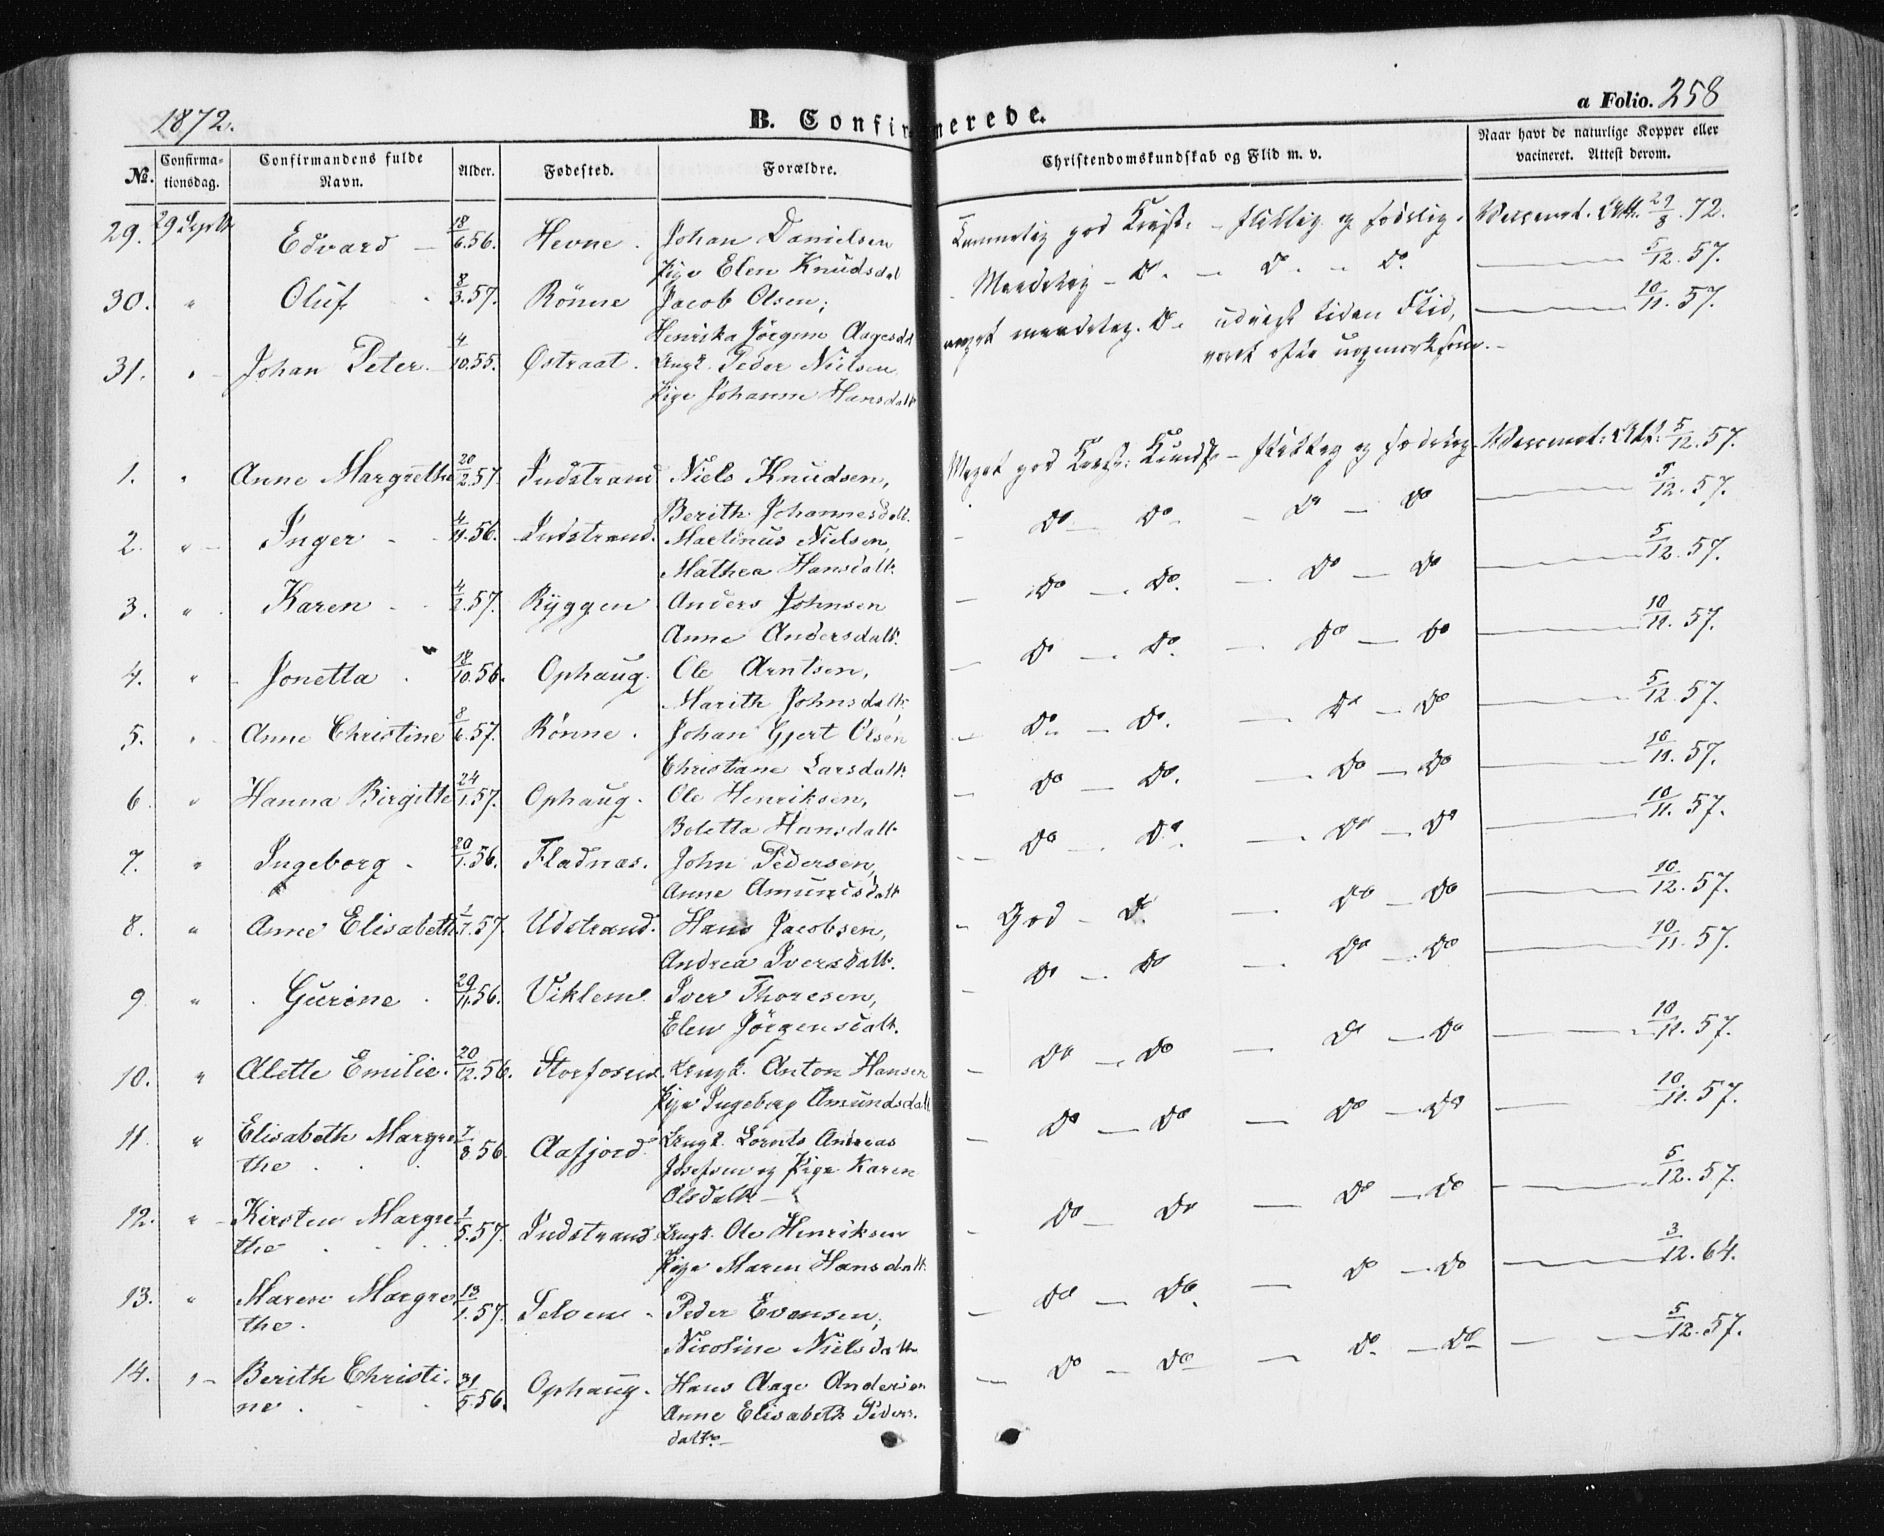 1872.
B. Confirmerede.
a Folio. 258
No. Confirma-tionsdag. Confirmandens fulde Navn. Alder. Fødested. Forældre. Christendomskundskab og Flid m. v. Naar havt de naturlige Kopper eller vacineret. Attest derom.
29. 29 Septbr Edvard 18/6.56. Hevne. Johan Danielsen
Pige Elen Knudsdal 29/8.72.
30. " Oluf 8/3.57. Rönne Jacob Olsen; Maadelig Do. Do. Do. 5/12.57.
Henrika Jörgine Aagesdt
31. " Johan Peter. 4/10.55. Østraat. Ungk. Peder Nielsen meget maadelig. Do. 10/11.57.
Pige Johanne Hansdatt
1. " Anne Margrethe 20/2.57 Indstrand Niels Knudsen, Meget god 5/12.57.
Berith Johannesdatt.
2. " Inger 4/11.56. Indstrand. Martinus Nielsen, Do Do. Do Do 5/12.57.
Mathea Hansdatt.
3. " Karen 4/2.57. Ryggen Anders Johnsen Do Do. Do Do 5/12.57.
Anne Andersdatt.
4. " Jonetta 18/10.56. Ophaug. Ole Arntsen, Do Do. Do Do 10/11.57.
Marith Johnsdatt.
5. " Anne Christine 8/6.57. Rönne. Johan Gjert Olsen Do Do. Do Do 5/12.57.
Christiane Larsdatt.
6. " Hanna Birgitte 24/1.57. Ophaug. Ole Henriksen, Do Do. Do Do 10/11.57.
Boletta Hansdatt.
7. " Ingeborg 20/1.56. Fladnæs. John Pedersen, Do Do. Do Do 10/11.57.
Anne Amundsdatt
8. " Anne Elisabeth 1/1.57. Udstrand. Hans Jacobsen, God Do. Do Do 10/12.57.
Andrea Iversdatt.
9. " Gurine 29/11.56. Viklem Iver Thoresen, Do Do Do Do 10/11.57.
Elen Jörgensdatt.
10. " Alette Emilie. 20/12.56. Storfosen. Ungk. Anton Hansen Do Do Do Do 10/11.57.
Pige Ingeborg Amundsdatt
11. " Elisabeth Margre- 7/8.56. Aafjord. Ungk. Lornts Andreas Do Do Do Do 10/11.57.
the Josefsen og Pige Karen
Olsdatt
12. " Kirsten Margre- 1/5.57. Indstrand Ungk. Ole Henriksen Do Do Do Do 5/12.57.
the Pige Maren Hansdatt.
13. " Maren Margre- 13/1.57. Selven Peder Evensen; Do Do. Do Do 3/12.64.
the. Nicoline Nielsdatt
14. " Berith Christi- 31/5.56. Ophaug. Hans Aage Andersen Do Do Do Do 5/12.57.
ne Anne Elisabeth Peders-
datt.